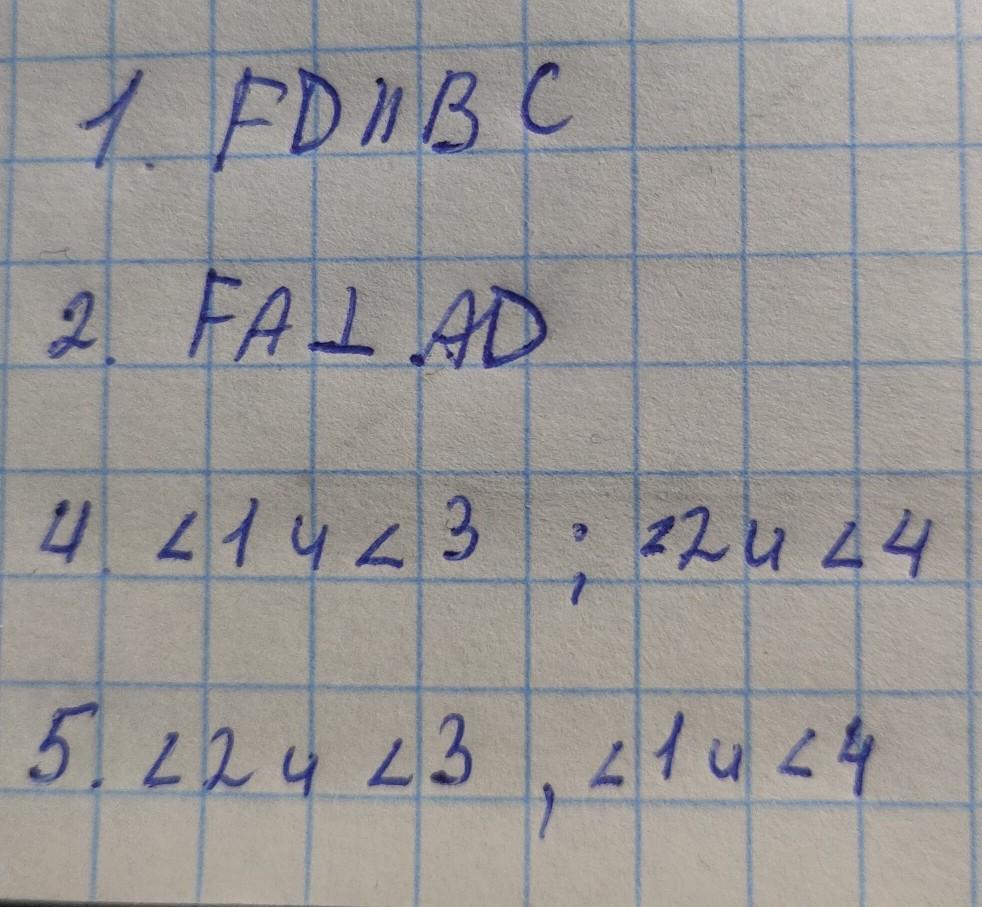 1. FD || BC
2. FA ⊥ AD
4. <1 и <3 ; <2 и <4
5. <2 и <3 , <1 и <4